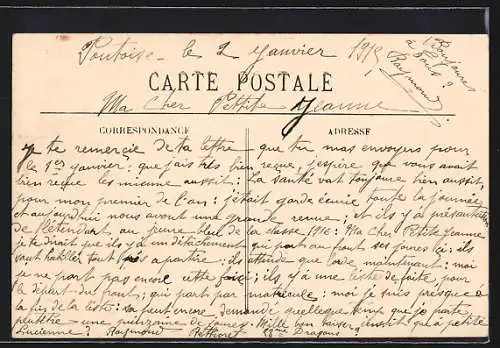 Pontoise - le 2 Janvier 1915
Bonjoures à tous ? Raymond
CARTE POSTALE
Ma Cher Petite Jeanne
CORRESPONDANCE ADRESSE
Je te remercie de ta lettre que tu mas envoyes pour
le 1er Janvier : que jais très bien reçue, jespère que vous avait
bien reçue les mienne aussit : La santé vat toujoure bien aussit,
pour mon premier de l'an : jetait garde écurie toute la journée
et aujourdhui nous avont une grande revue ; et ils y a présentation
de l'étendart au jeune bleu de la classe 1916 : Ma Cher Petite Jeanne
je te dirait que ils y a un détachement qui part au front ses joures ici : ils
sont habiller tout près a partire ; ils attende que lorde maintenant : moi
je ne part pas encore cette fois ; ils y a une liste de faite, pour
le départ du front ; qui part par matricule : moi je suis presque à
la fin de la liste : sa peut encore demande quelleque temp que je parte
peutêtre une quinzaine de joures. Mille bon baiser, ainsit qua petite
Lucienne ? Raymond Dragons ?